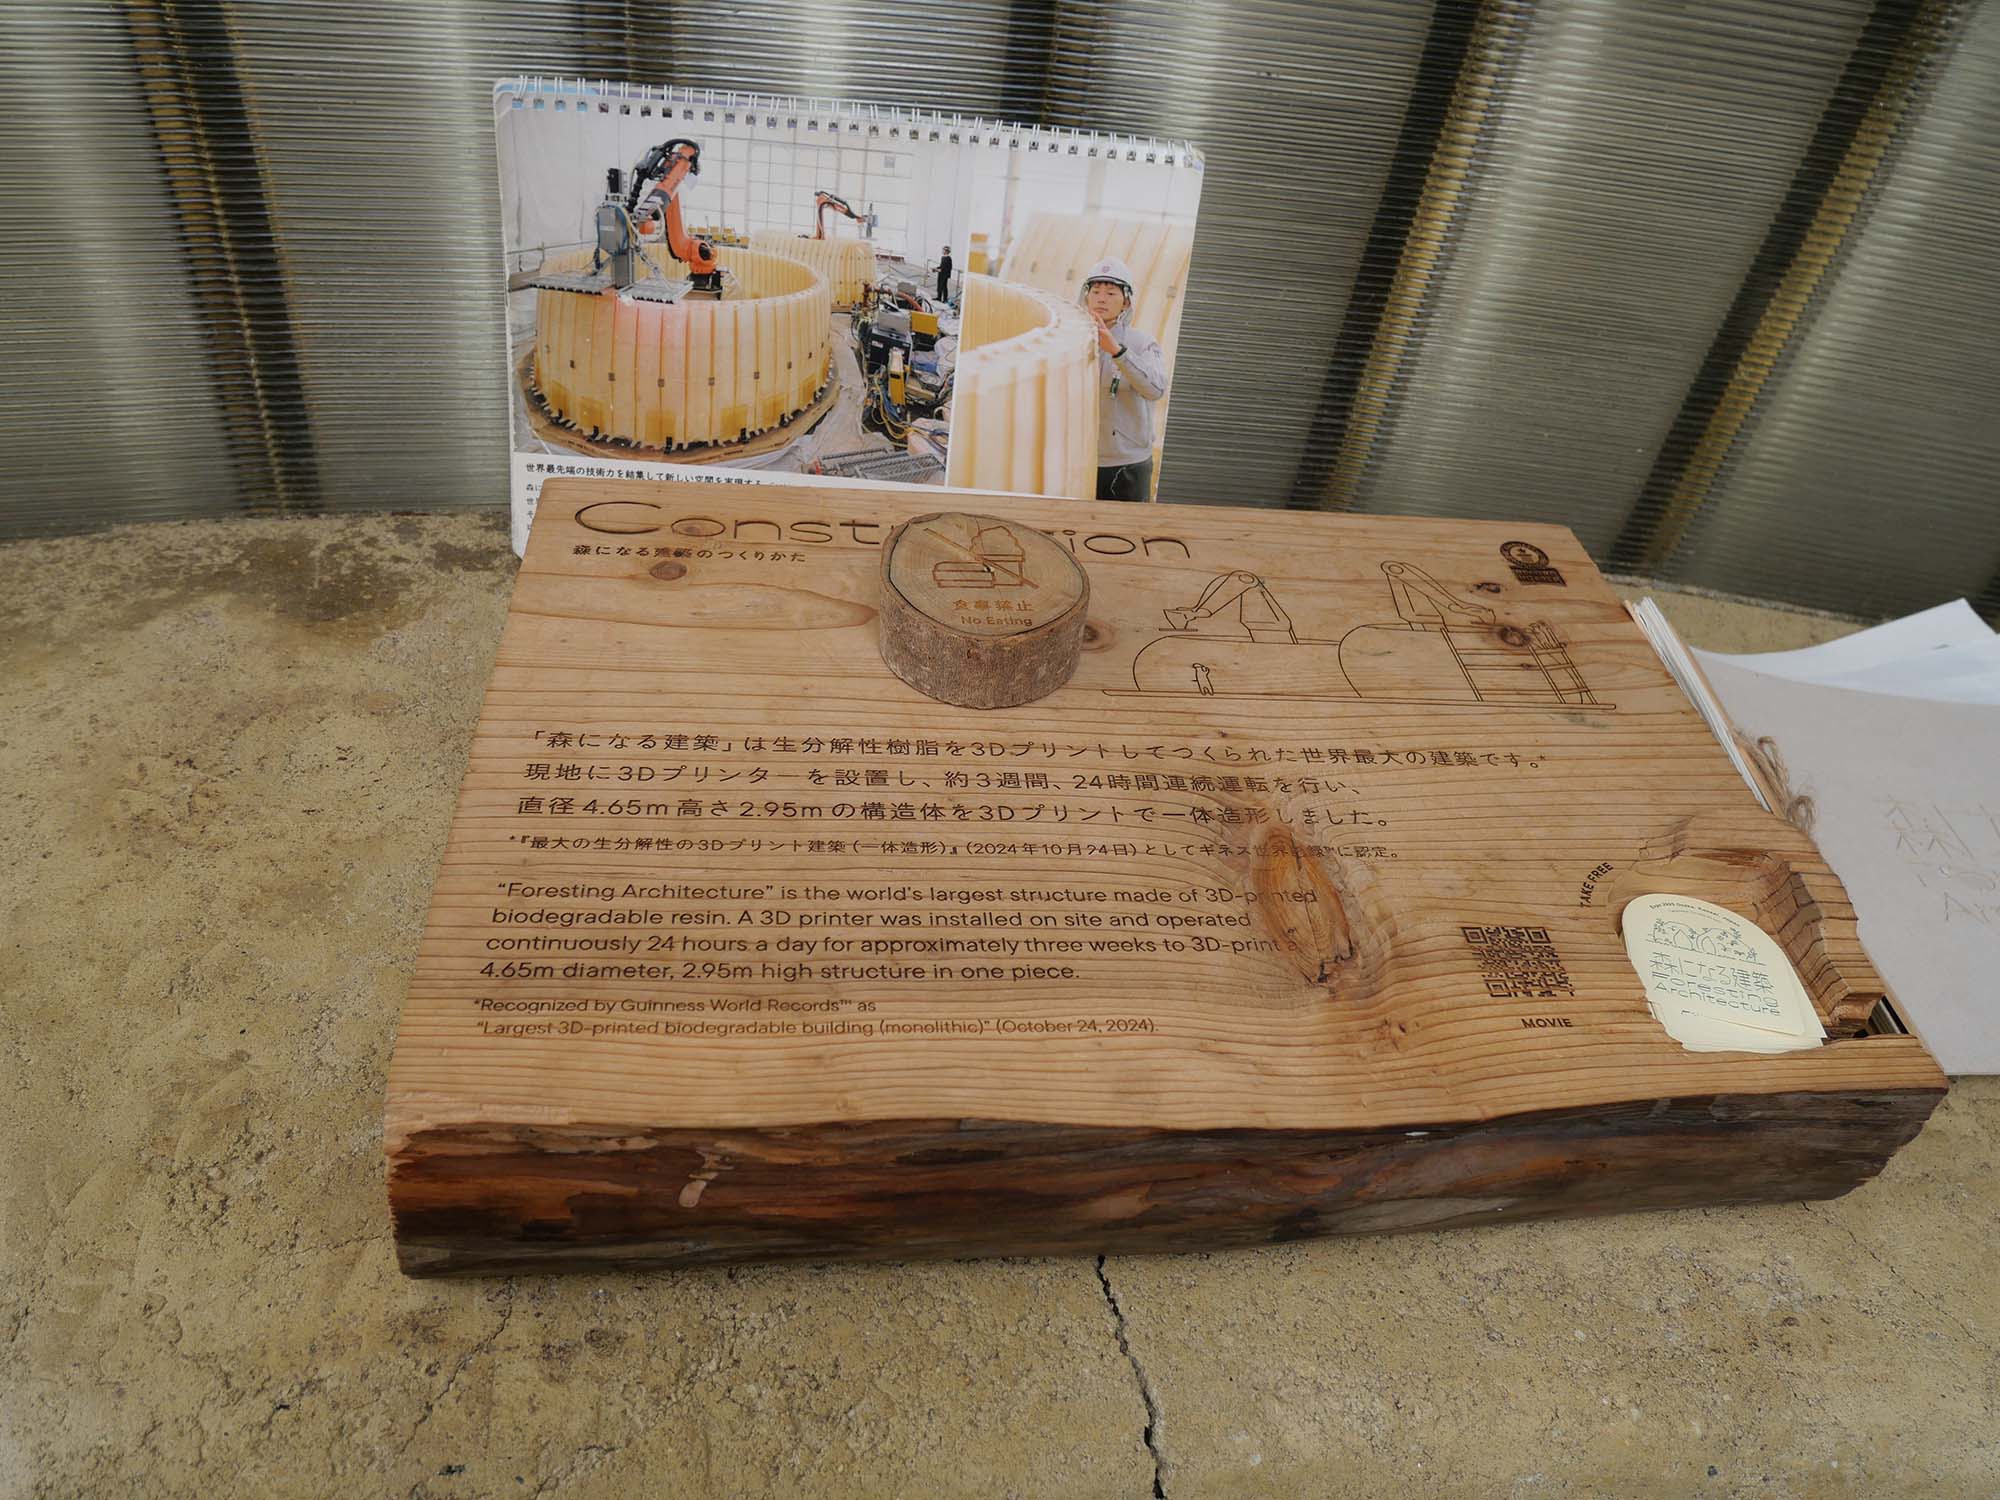 世界最先端の技術力を結集して新しい空間を実現する
Construction
森になる建築のつくりかた
食事禁止
No Eating
「森になる建築」は生分解性樹脂を3Dプリントしてつくられた世界最大の建築です。*
現地に3Dプリンターを設置し、約3週間、24時間連続運転を行い、
直径4.65m高さ2.95mの構造体を3Dプリントで一体造形しました。
*『最大の生分解性の3Dプリント建築(一体造形)』(2024年10月24日)としてギネス世界記録™に認定。
“Foresting Architecture” is the world's largest structure made of 3D-printed
biodegradable resin. A 3D printer was installed on site and operated
continuously 24 hours a day for approximately three weeks to 3D-print a
4.65m diameter, 2.95m high structure in one piece.
*Recognized by Guinness World Records™ as
“Largest 3D-printed biodegradable building (monolithic)” (October 24, 2024).
MOVIE
TAKE FREE
森になる建築
Foresting
Architecture